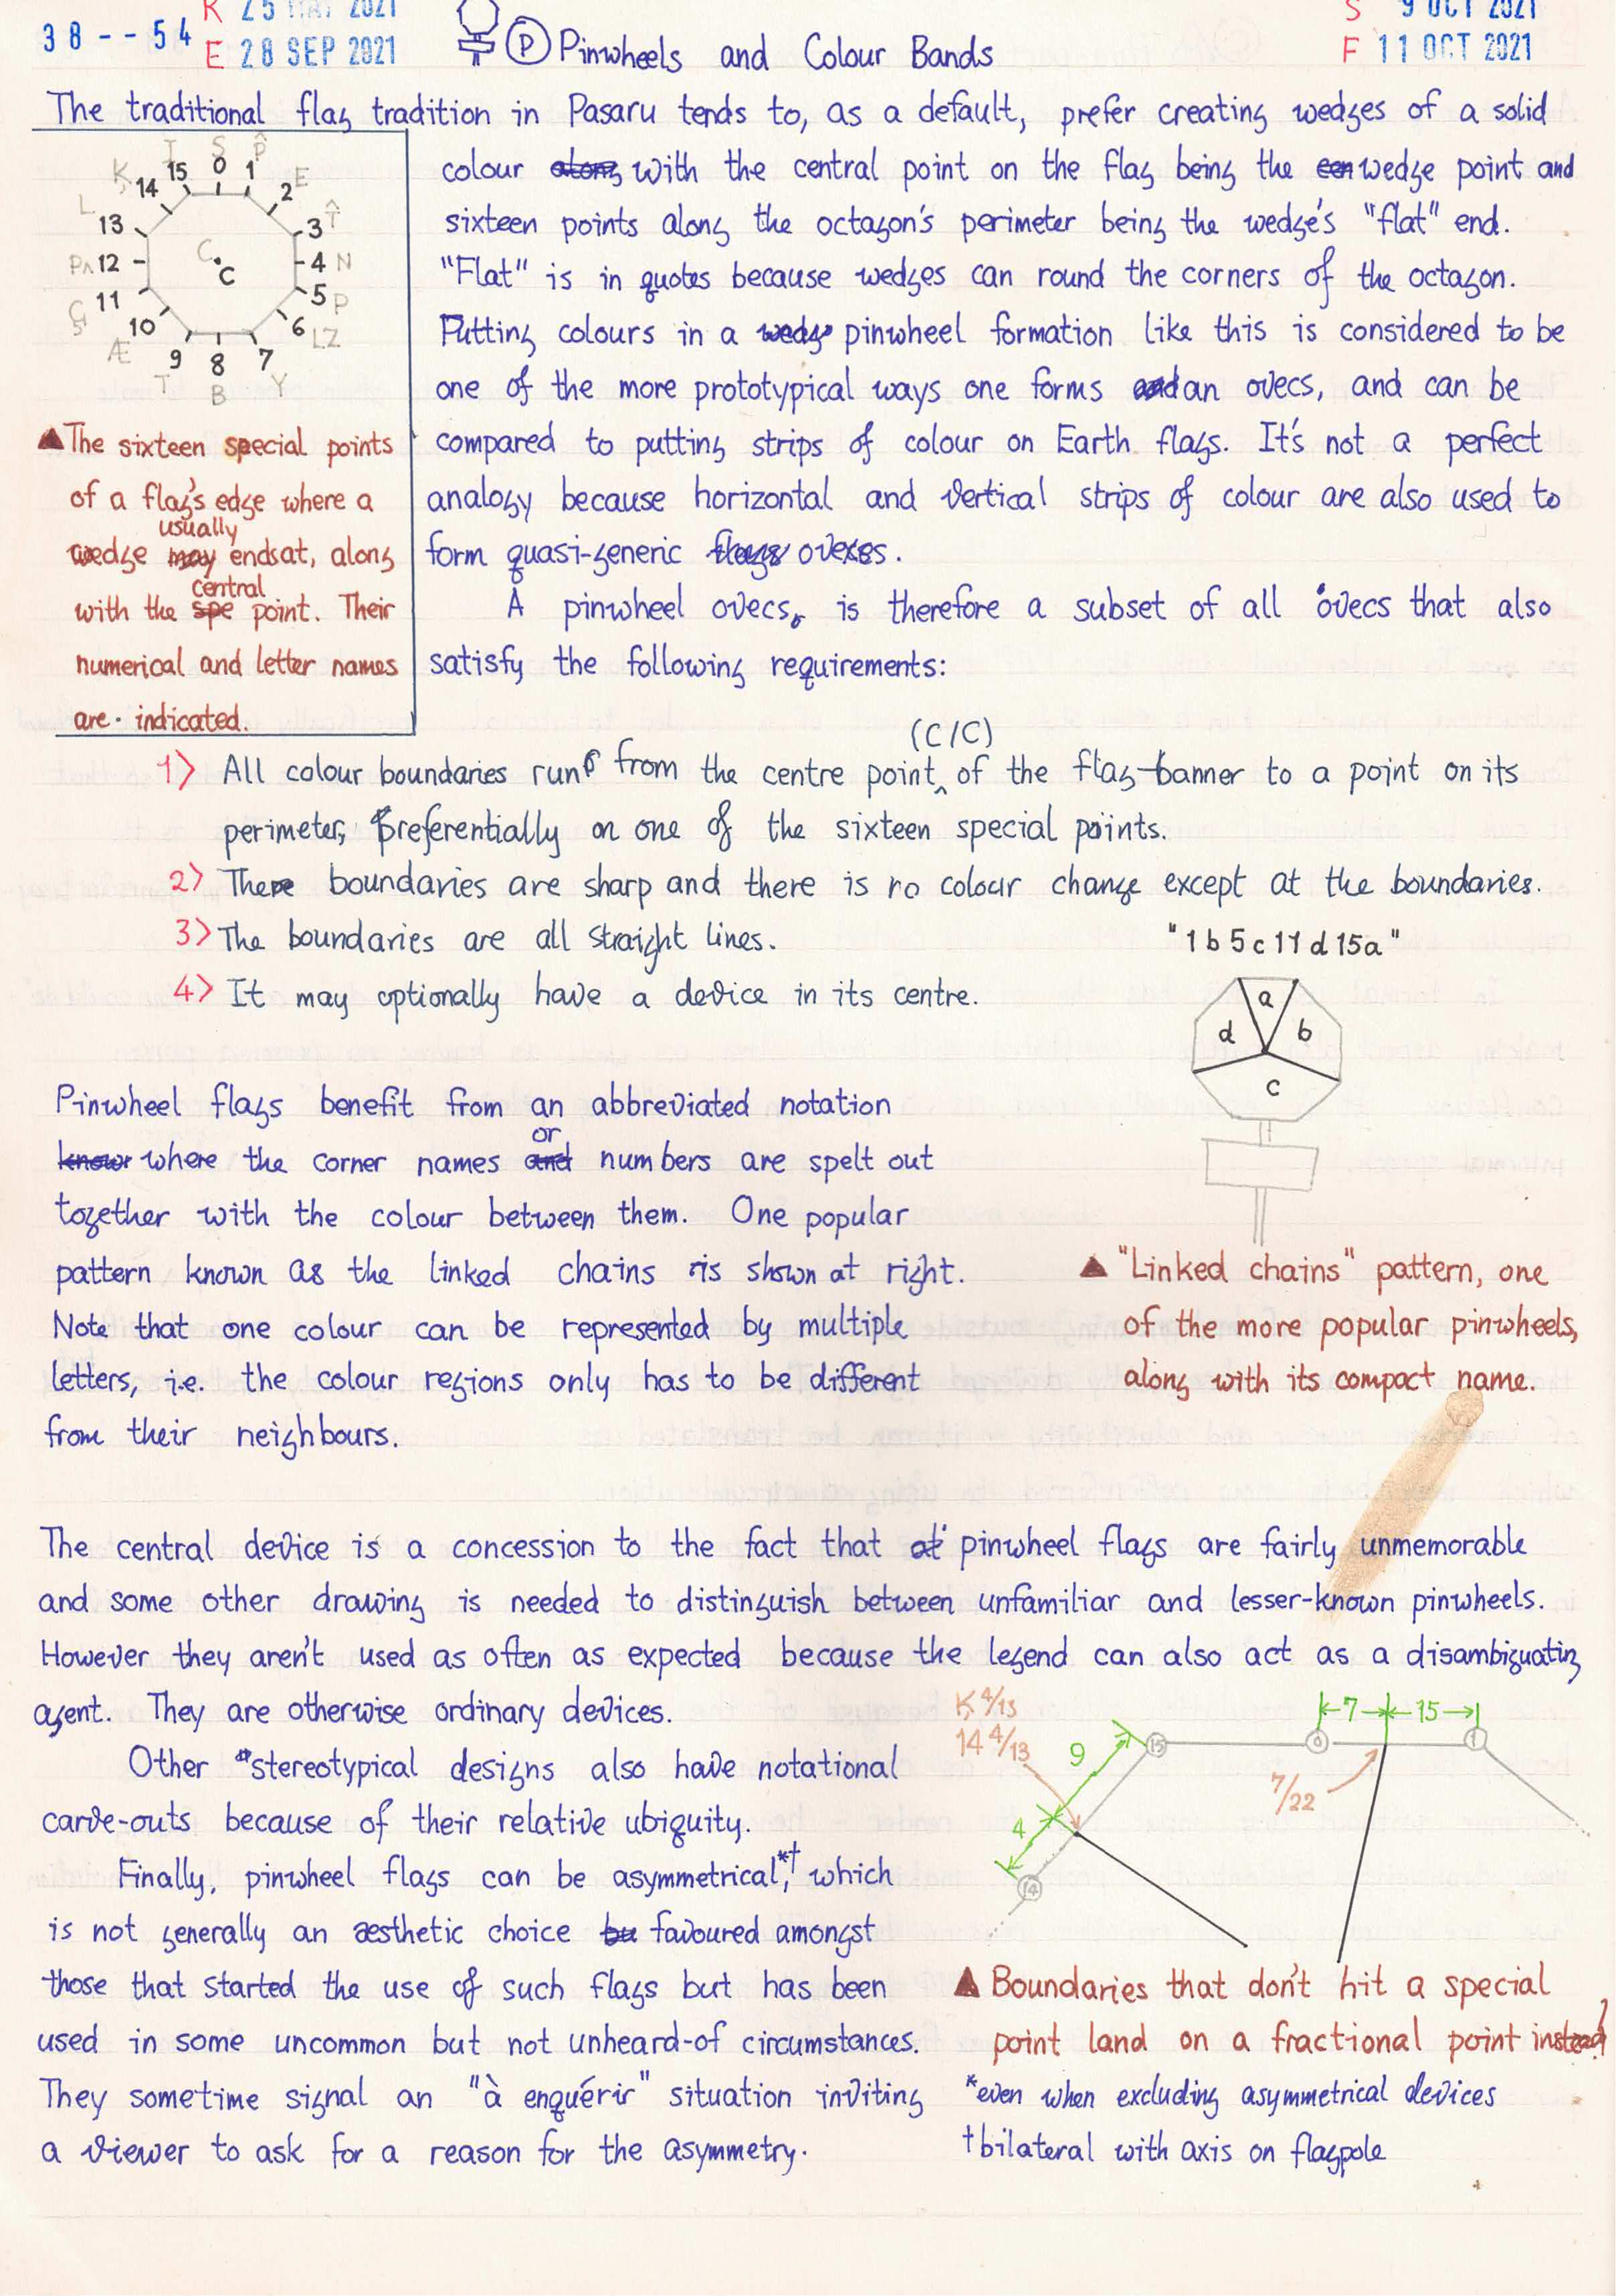 38--54
K 25 MAY 2021
E 28 SEP 2021
Ⓟ Pinwheels and Colour Bands
S 9 OCT 2021
F 11 OCT 2021
The traditional flag tradition in Pasaru tends to, as a default, prefer creating wedges of a solid
colour along with the central point on the flag being the cen wedge point and
sixteen points along the octagon's perimeter being the wedge's "flat" end.
"Flat" is in quotes because wedges can round the corners of the octagon.
Putting colours in a wedge pinwheel formation like this is considered to be
one of the more prototypical ways one forms and an ovecs, and can be
compared to putting strips of colour on Earth flags. It's not a perfect
analogy because horizontal and vertical strips of colour are also used to
form quasi-generic flags ovexes.
A pinwheel ovecs, is therefore a subset of all ovecs that also
satisfy the following requirements:
I S P̂
K 15 0 1 E
14 2
L 13 3 T̂
C
PΛ 12 4 N
C
11 5 P
10 6 LZ
Æ 9 8 7
T B Y
▲The sixteen special points
of a flag's edge where a
usually
wedge may ends at, along
central
with the spe point. Their
numerical and letter names
are indicated.
(C/C)
1> All colour boundaries run from the centre point‸ of the flag banner to a point on its
perimeter, preferentially on one of the sixteen special points.
2> There boundaries are sharp and there is no colour change except at the boundaries.
3> The boundaries are all straight lines.
4> It may optionally have a device in its centre.
"1b5c11d15a"
a
d b
c
Pinwheel flags benefit from an abbreviated notation
or
know where the corner names and numbers are spelt out
together with the colour between them. One popular
pattern known as the linked chains is shown at right.
Note that one colour can be represented by multiple
letters, i.e. the colour regions only has to be different
from their neighbours.
▲ "Linked chains" pattern, one
of the more popular pinwheels,
along with its compact name.
The central device is a concession to the fact that at pinwheel flags are fairly unmemorable
and some other drawing is needed to distinguish between unfamiliar and lesser-known pinwheels.
However they aren't used as often as expected because the legend can also act as a disambiguating
agent. They are otherwise ordinary devices.
Other stereotypical designs also have notational
carve-outs because of their relative ubiquity.
Finally, pinwheel flags can be asymmetrical,*† which
is not generally an æsthetic choice bu favoured amongst
those that started the use of such flags but has been
used in some uncommon but not unheard-of circumstances.
They sometime signal an "à enquérir" situation inviting
a viewer to ask for a reason for the asymmetry.
K 4/13
14 4/13
9
4
14
15
0
1
7 15
7/22
▲ Boundaries that don't hit a special
point land on a fractional point instead
*even when excluding asymmetrical devices
†bilateral with axis on flagpole